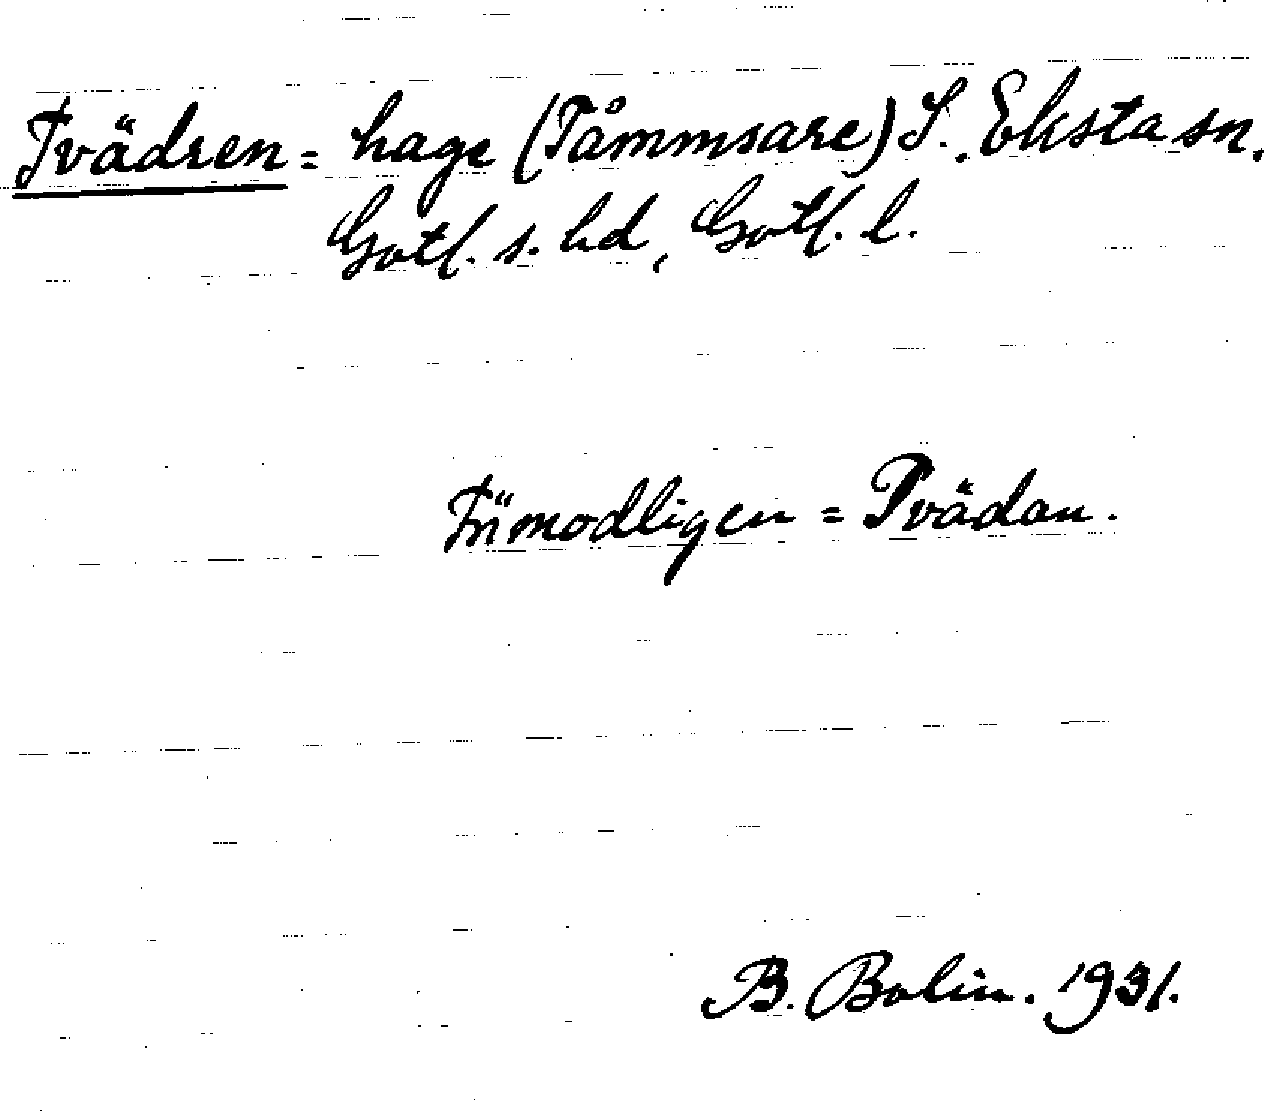 Tvädren = hage (Tåmmsare) S. Eksta sn.
Gotl. s. hd, Gotl. l.
Förmodligen = Tvädan.
B. Bolin. 1931.